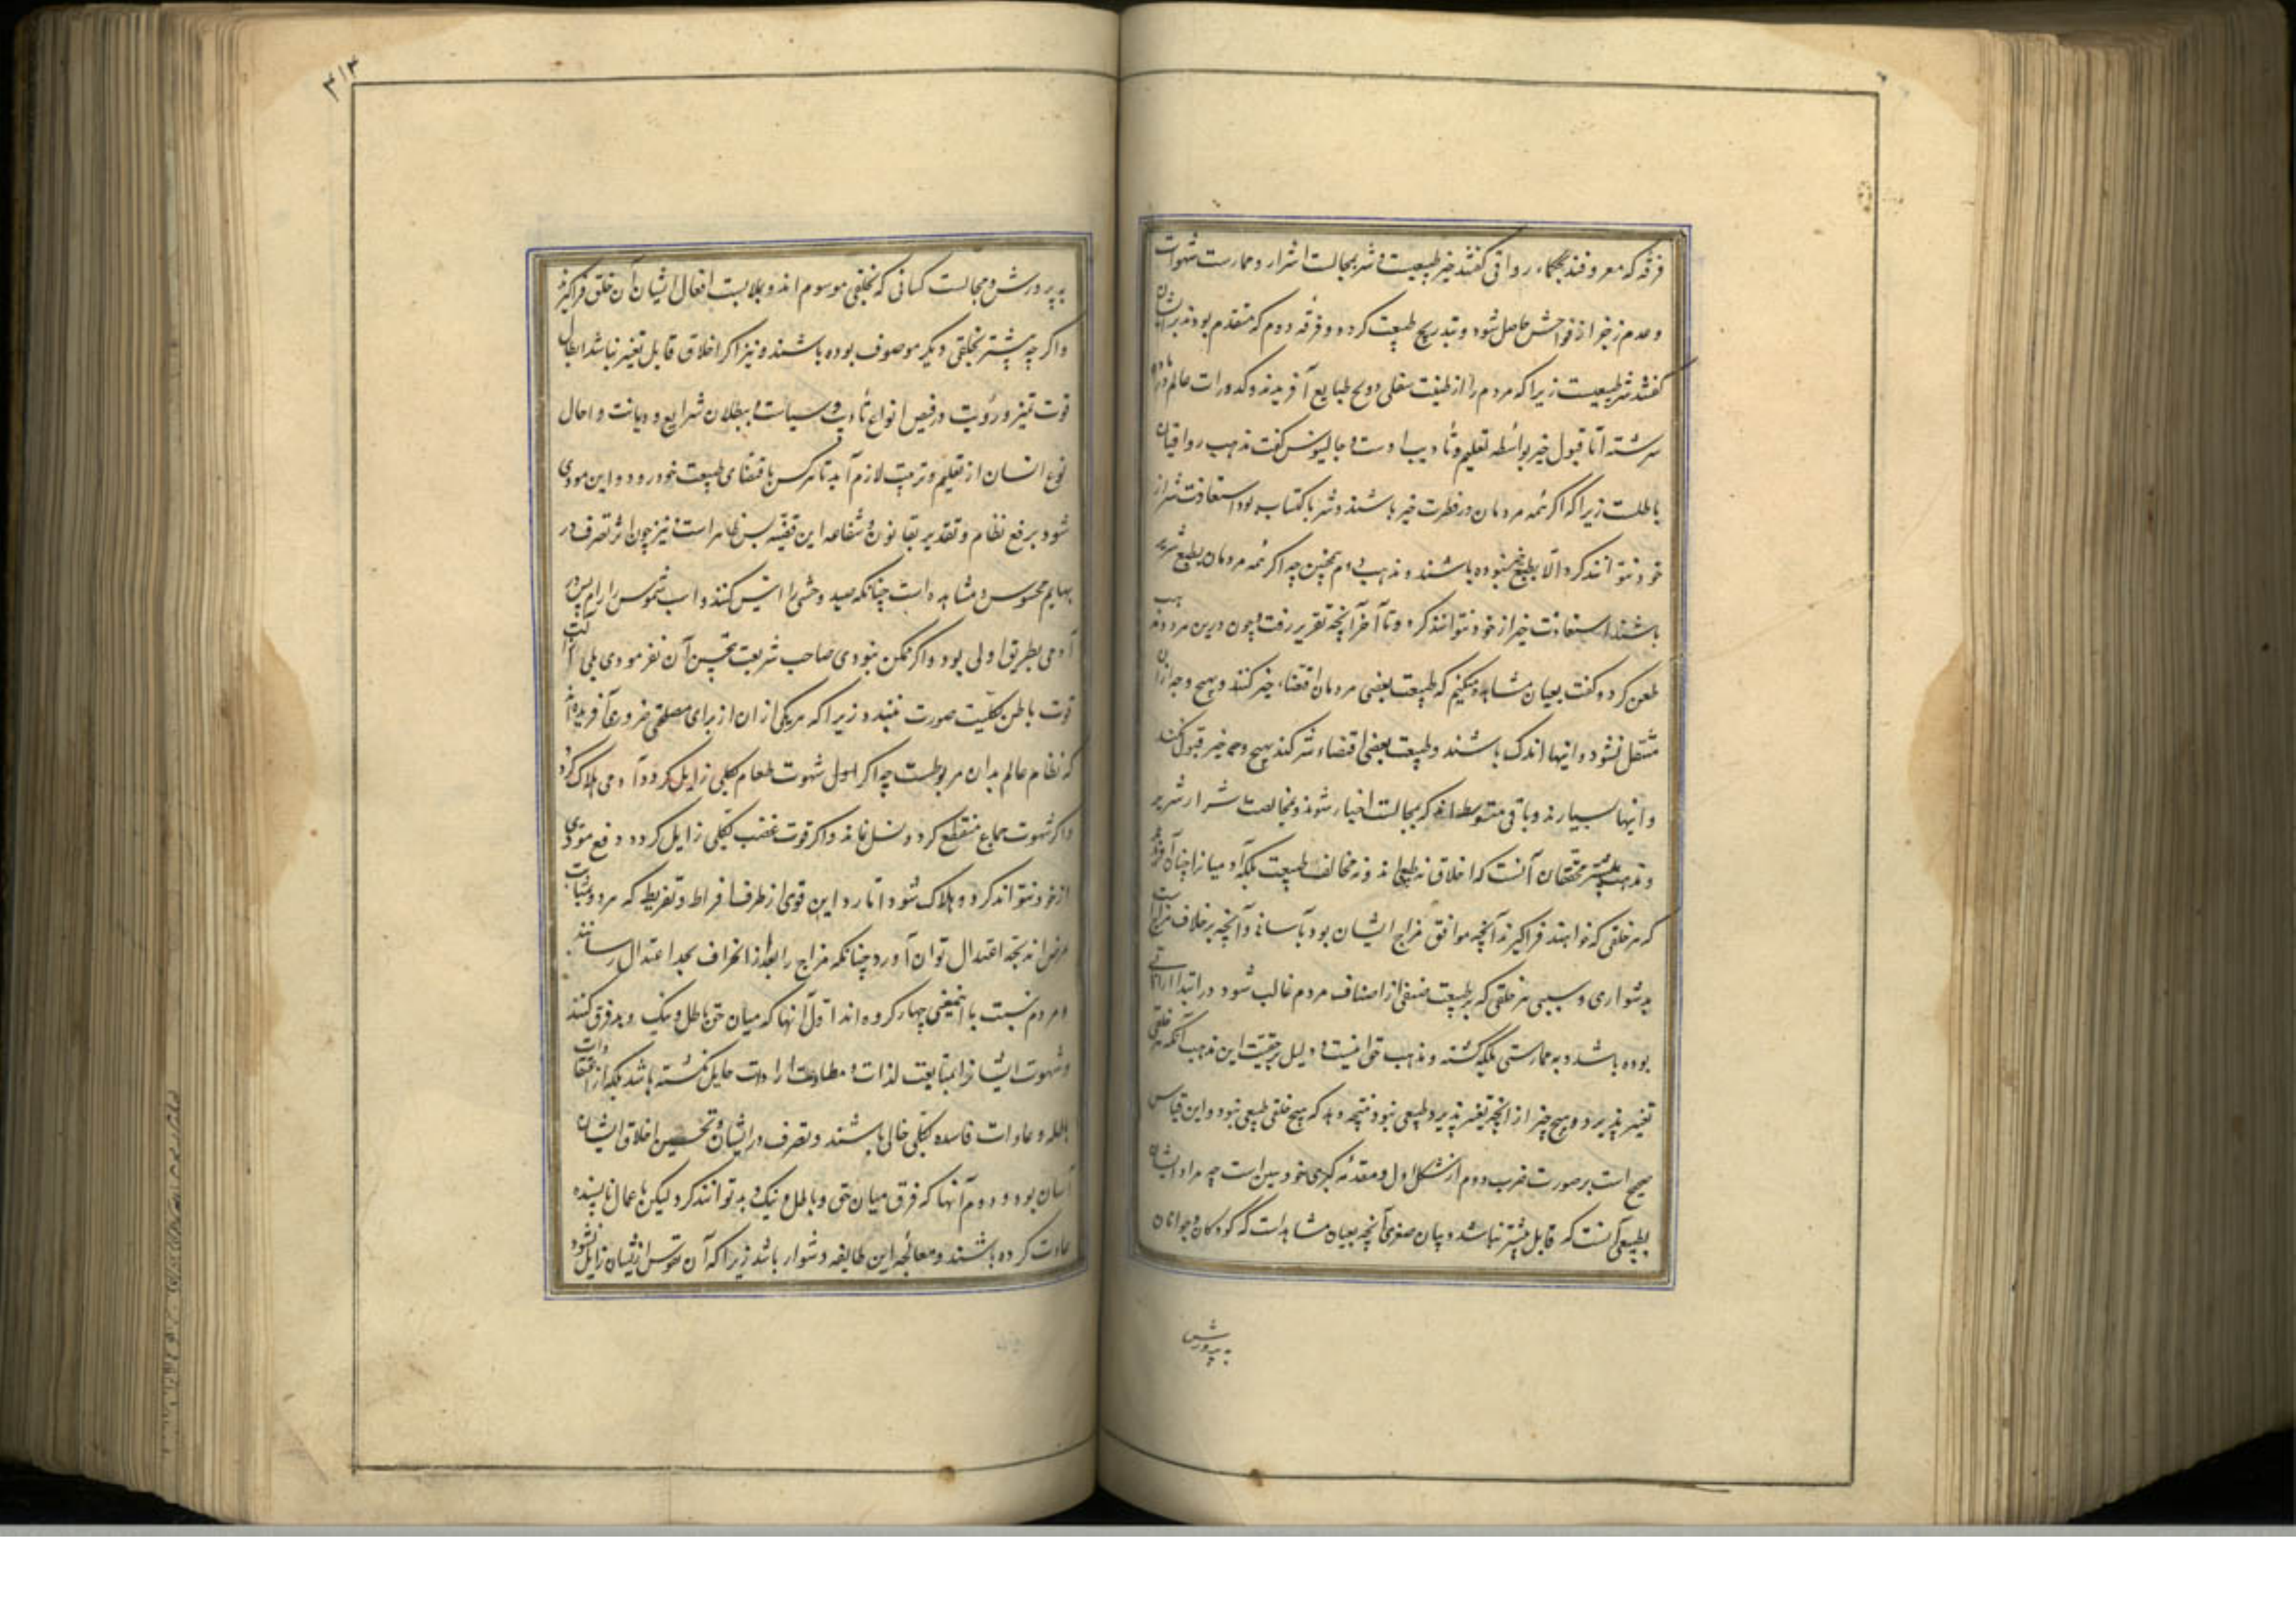 فرقه که معروفند بحکماء رواقی گفتند خیر طبیعیست و شر بمجالست اشرار و ممارست شهوات
و عدم زجر از فواحش حاصل شود و بتدریج طبیعت گردد و فرقه دوم که متقدم بودند بر ایشان
گفتند شر طبیعیست زیرا که مردم را از طینت سفلی و وسخ طبایع آفریدند و کدورات عالم در ماده
سرشته اما قبول خیر بواسطه تعلیم و تأدیب است و جالینوس گفت مذهب رواقیان
باطلست زیرا که اگر همه مردمان در فطرت خیر باشند و شر باکتساب بود استفادت شر از
خود نتوانند کرد و الا بطبع خیر نبوده باشند و مذهب دوم همچنین چه اگر همه مردمان بطبع شریر
باشند استفادت خیر از خود نتوانند کرد و تا آخر آنچه تقریر رفت و چون درین هر دو مذهب
طعن کرد و گفت بعیان مشاهده میکنیم که طبیعت بعضی مردمان اقتضاء خیر کند و بهیچ وجه از آن
منتقل نشود و اینها اندک باشند و طبیعت بعضی اقتضاء شر کند بهیچ وجه خیر قبول نکند
و اینها بسیارند و باقی متوسط‌اند که بمجالست اخیار خیر شوند و بمخالطت اشرار شریر
و مذهب محققان آنست که اخلاق نه طبیعی‌اند و نه مخالف طبیعت بلکه آدمیانرا چنان آفریده
که هر خلقی که خواهند فراگیرند آنچه موافق مزاج ایشان بود بآسانی و آنچه برخلاف مزاج است
بدشواری و سبب هر خلقی که بر طبیعت صنفی از اصناف مردم غالب شود در ابتدا ارادتی
بوده باشد و به ممارستی ملکه گشته و مذهب حق اینست و دلیل بر حقیت این مذهب آنکه هر خلقی
تغییر پذیرد و هیچ چیز از آنچه تغییر پذیرد طبیعی نبود نتیجه دهد که هیچ خلقی طبیعی نبود و این قیاس
صحیح است بر صورت ضرب دوم از شکل اول و مقدمه کبری خود مبین است چه مراد ایشان
بطبیعی آنست که قابل تغییر نباشد و بیان صغری آنچه بعیان مشاهد است که کودکان و جوانان
به پرورش
۳۱۳
به پرورش و مجالست کسانی که بخلقی موسوم‌اند و بملابست افعال ایشان آن خلق فراگیرند
و اگر چه پیشتر بخلقی دیگر موصوف بوده باشند و نیز اگر اخلاق قابل تغییر نباشد ابطال
قوت تمیز و رؤیت و رفض انواع تأدیب و سیاست و بطلان شرایع و دیانت و اهمال
نوع انسان از تعلیم و تربیت لازم آید تا هر کس باقتضای طبیعت خود رود و این مودی
شود برفع نظام و تقدیر بقا نوع و شناعه این قضیه بس ظاهر است و نیز چون اثر تصرف در
بهایم محسوس و مشاهده است چنانکه صید وحشی را انیس کنند و اسب شموس را رام پس در
آدمی بطریق اولی بود و اگر ممکن نبودی صاحب شریعت بتحسین آن نفرمودی بلی
قوت باطن بکلیت صورت نبندد زیرا که هر یکی از آن از برای مصلحتی ضروری آفریده شد
که نظام عالم بدان مربوطست چه اگر اول شهوت طعام بکلی زایل گردد آدمی هلاک گردد
و اگر شهوت جماع منقطع گردد نسل نماند و اگر قوت غضب بکلی زایل گردد دفع موذی
از خود نتواند کرد و هلاک شود اما رد این قوی از طرف افراط و تفریط که هر دو بمثابت
مرض‌اند بحد اعتدال توان آورد چنانکه مزاج را بطب از انحراف بحد اعتدال رسانند
و مردم نسبت با اینمعنی چهار گروه‌اند اول آنها که میان حق و باطل و نیک و بد فرق نکنند
و شهوت ایشانرا بمتابعت لذات و مطاوعت ارادات حایل نگشته باشد بلکه از اعتقادات
باطله و عادات فاسده بکلی خالی باشند و تصرف در ایشان و تحسین اخلاق ایشان
آسان بود و دوم آنها که فرق میان حق و باطل و نیک و بد توانند کرد لیکن باعمال ناپسنده
عادت کرده باشند و معالجه این طایفه دشوار باشد زیرا که آن نفوس از ایشان زایل نشود